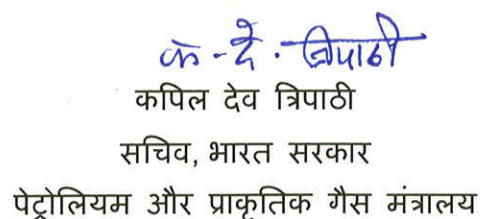 के - दे . त्रिपाठी
कपिल देव त्रिपाठी
सचिव, भारत सरकार
पेट्रोलियम और प्राकृतिक गैस मंत्रालय